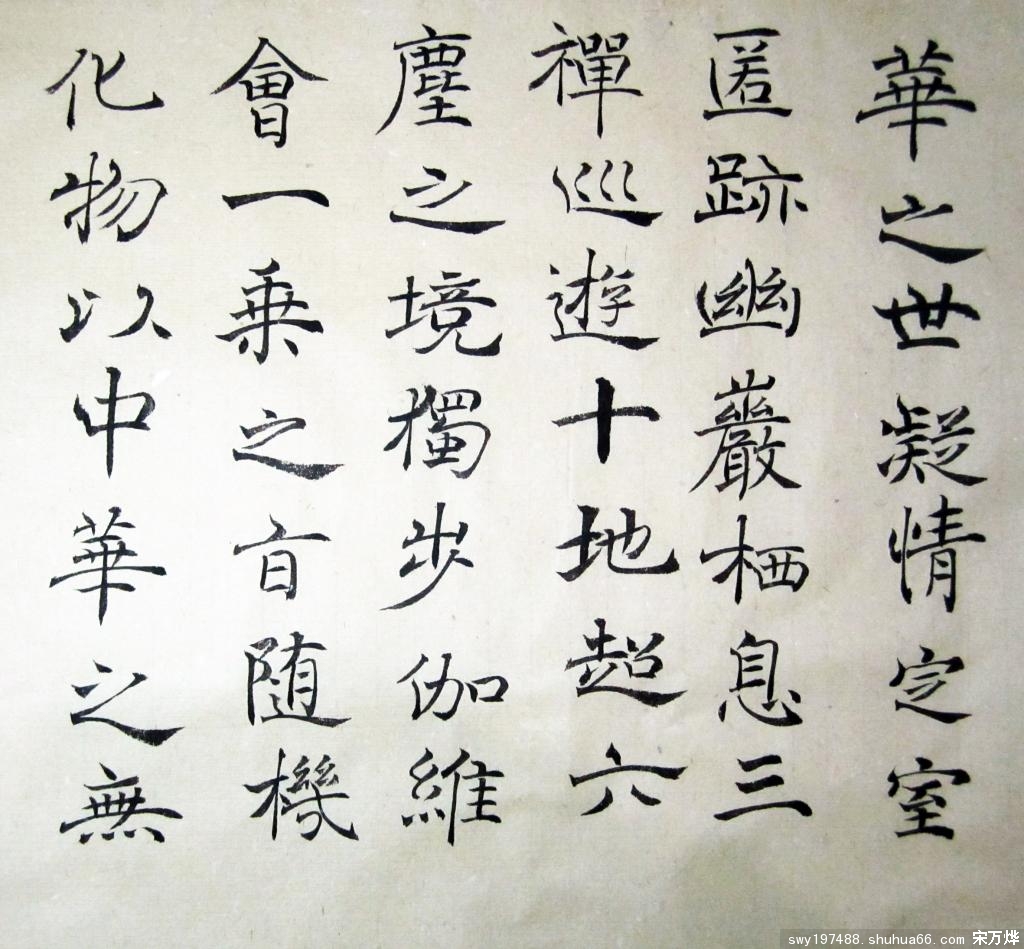 華之世凝情定室
匿跡幽巖栖息三
禪巡遊十地超六
塵之境獨步伽維
會一乗之盲随機
化物以中華之無
swy197488.shuhua66.com 宋万烨